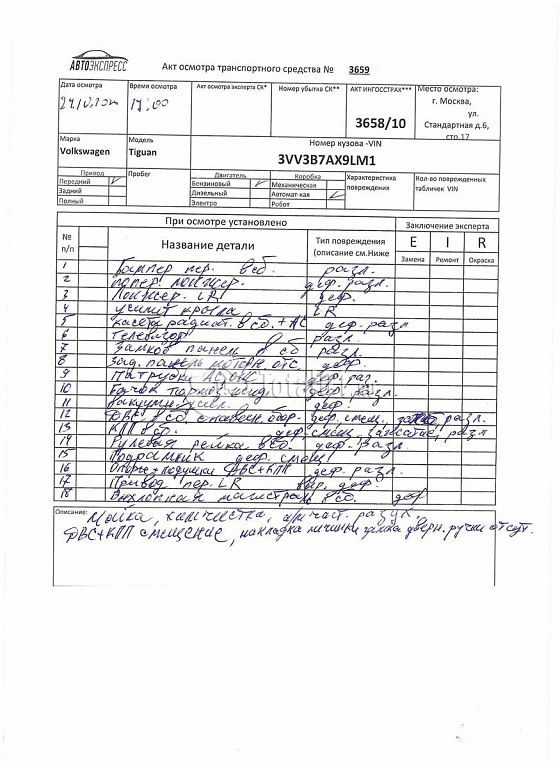 АВТОЭКСПРЕСС
Акт осмотра транспортного средства № 3659
Дата осмотра Время осмотра Акт осмотра эксперта СК* Номер убытка СК** АКТ ИНГОССТРАХ*** Место осмотра:
17:00 3658/10 г. Москва,
ул.
Стандартная д.6,
стр.17
Марка Модель Номер кузова -VIN
Volkswagen Tiguan 3VV3B7AX9LM1
Привод Пробег Двигатель Коробка Характеристика повреждения Кол-во поврежденных табличек VIN
Передний Бензиновый Механическая
Задний Дизельный Автомат-кая
Полный Электро Робот
При осмотре установлено Заключение эксперта
№ п/п Название детали Тип повреждения (описание см.Ниже E I R
Замена Ремонт Окраска
1 Бампер пер. в сб. разл.
2 попер. лонжер. деф. разл.
3 Лонжер. LR деф.
4 усилит крыла LR
5 касета радиат. в сб. + АС деф. разл
6 Телевизор разл.
7 Замков панель в сб разл.
8 Зад. панель моторн. отс. деф
9 Патрубки деф. раз.
10 Бачок деф. разл.
11 Вакуумн. усил. деф.
12 ДВС в сб. с навесн. обор. деф, смещ, разл.
13 КПП в сб. деф, смещ, разл
14 Рулевая рейка в сб. деф. разл.
15 Подрамник деф. смещ
16 Опоры + подушки ДВС+КПП деф. разл.
17 Привод пер. LR деф.
18 Выхлопная магистраль в сб. деф
Описание: Мойка, химчистка, а/м част. разук.
ДВС+КПП смещение, накладка личинки замка дверн. ручки отсут.